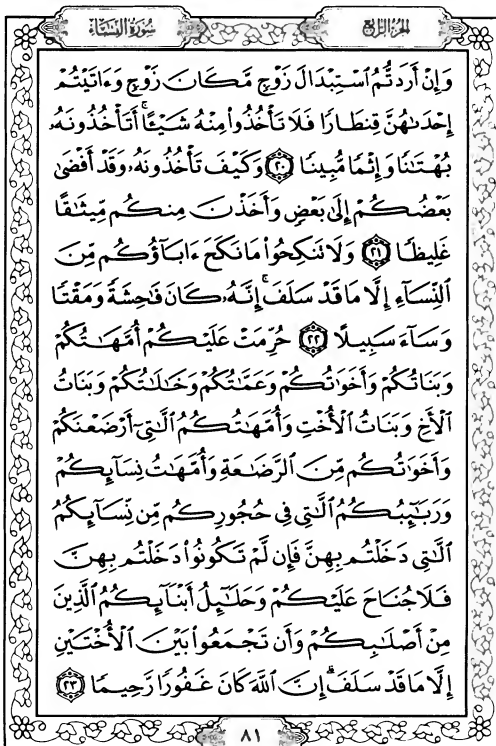 سُورَةُ النِّسَاءِ
الجزء الرابع
وَإِنْ أَرَدتُّمُ ٱسْتِبْدَالَ زَوْجٍ مَّكَانَ زَوْجٍ وَءَاتَيْتُمْ
إِحْدَىٰهُنَّ قِنطَارًا فَلَا تَأْخُذُوا۟ مِنْهُ شَيْـًٔا ۚ أَتَأْخُذُونَهُۥ
بُهْتَٰنًا وَإِثْمًا مُّبِينًا ﴿٢٠﴾ وَكَيْفَ تَأْخُذُونَهُۥ وَقَدْ أَفْضَىٰ
بَعْضُكُمْ إِلَىٰ بَعْضٍ وَأَخَذْنَ مِنكُم مِّيثَٰقًا
غَلِيظًا ﴿٢١﴾ وَلَا تَنكِحُوا۟ مَا نَكَحَ ءَابَآؤُكُم مِّنَ
ٱلنِّسَآءِ إِلَّا مَا قَدْ سَلَفَ ۚ إِنَّهُۥ كَانَ فَٰحِشَةً وَمَقْتًا
وَسَآءَ سَبِيلًا ﴿٢٢﴾ حُرِّمَتْ عَلَيْكُمْ أُمَّهَٰتُكُمْ
وَبَنَاتُكُمْ وَأَخَوَٰتُكُمْ وَعَمَّٰتُكُمْ وَخَٰلَٰتُكُمْ وَبَنَاتُ
ٱلْأَخِ وَبَنَاتُ ٱلْأُخْتِ وَأُمَّهَٰتُكُمُ ٱلَّٰتِىٓ أَرْضَعْنَكُمْ
وَأَخَوَٰتُكُم مِّنَ ٱلرَّضَٰعَةِ وَأُمَّهَٰتُ نِسَآئِكُمْ
وَرَبَٰٓئِبُكُمُ ٱلَّٰتِى فِى حُجُورِكُم مِّن نِّسَآئِكُمُ
ٱلَّٰتِى دَخَلْتُم بِهِنَّ فَإِن لَّمْ تَكُونُوا۟ دَخَلْتُم بِهِنَّ
فَلَا جُنَاحَ عَلَيْكُمْ وَحَلَٰٓئِلُ أَبْنَآئِكُمُ ٱلَّذِينَ
مِنْ أَصْلَٰبِكُمْ وَأَن تَجْمَعُوا۟ بَيْنَ ٱلْأُخْتَيْنِ
إِلَّا مَا قَدْ سَلَفَ ۗ إِنَّ ٱللَّهَ كَانَ غَفُورًا رَّحِيمًا ﴿٢٣﴾
٨١